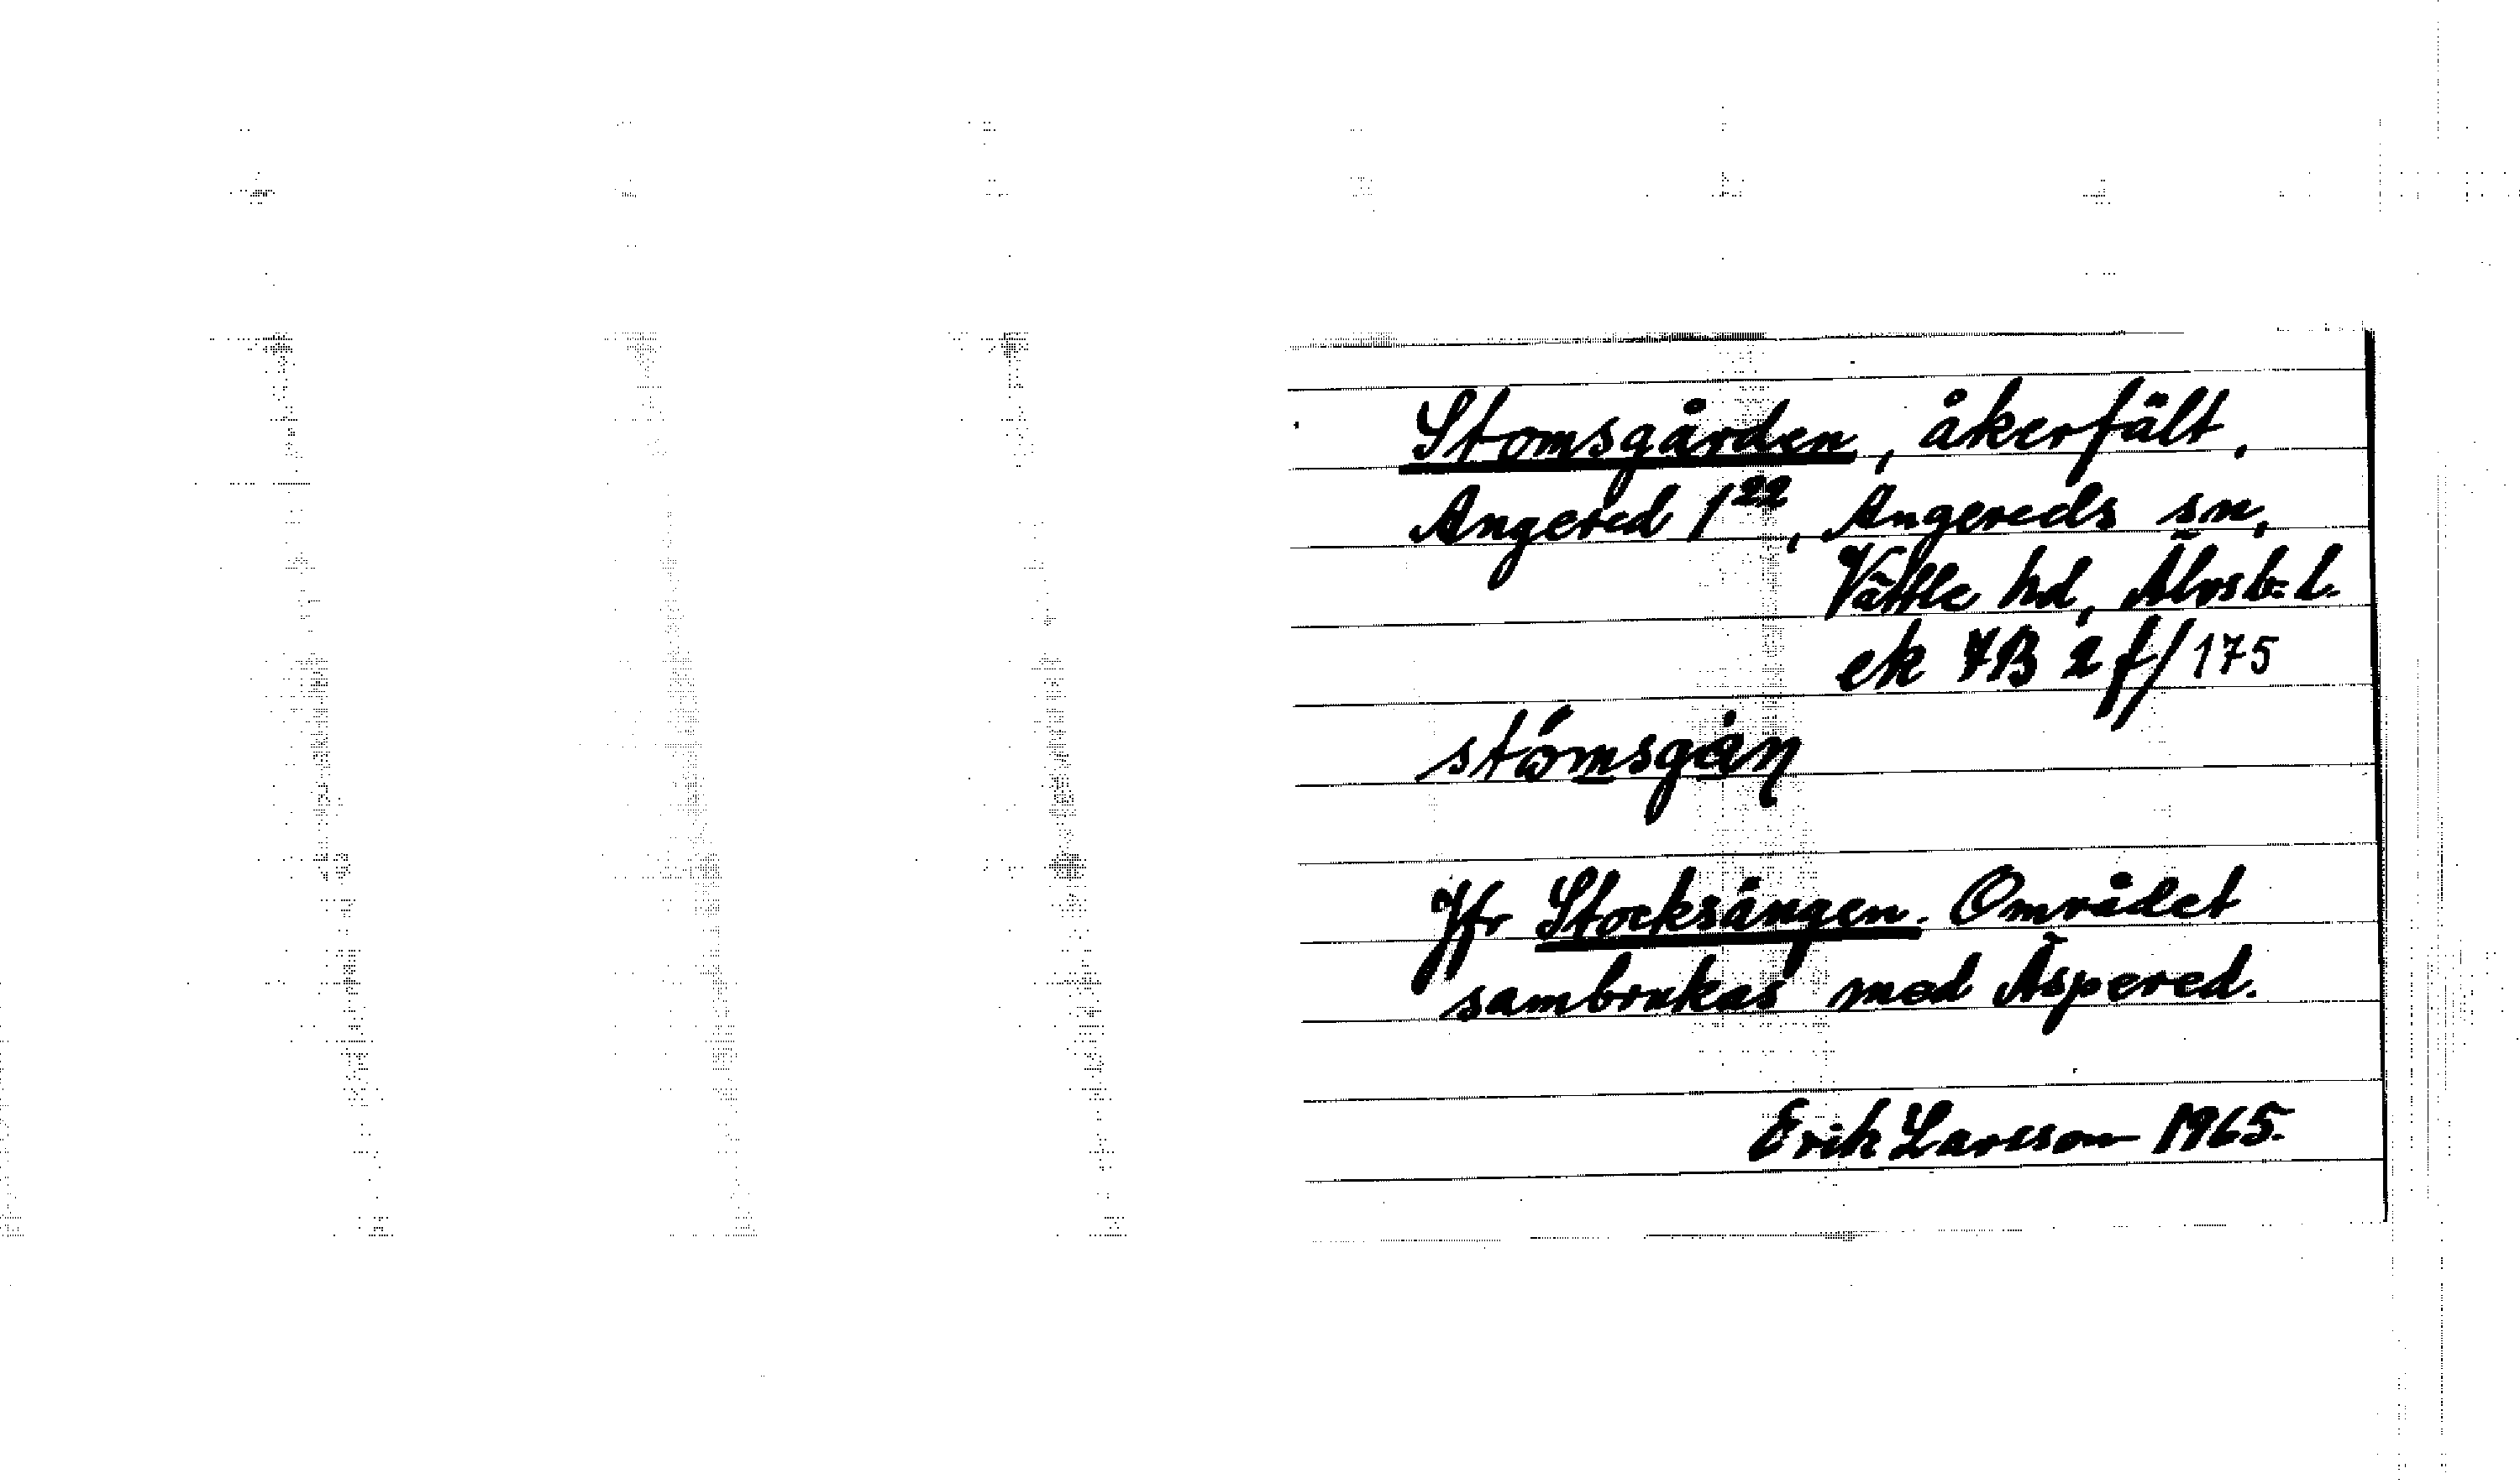 Stomsgården, åkerfält,
Angered 1²², Angereds sn,
Vättle hd, Älvsb. l.
ek 7B 2 f/175
stómsgån
Jfr Stocksängen. Området
sambrukas med Äspered.
Erik Larsson 1965.